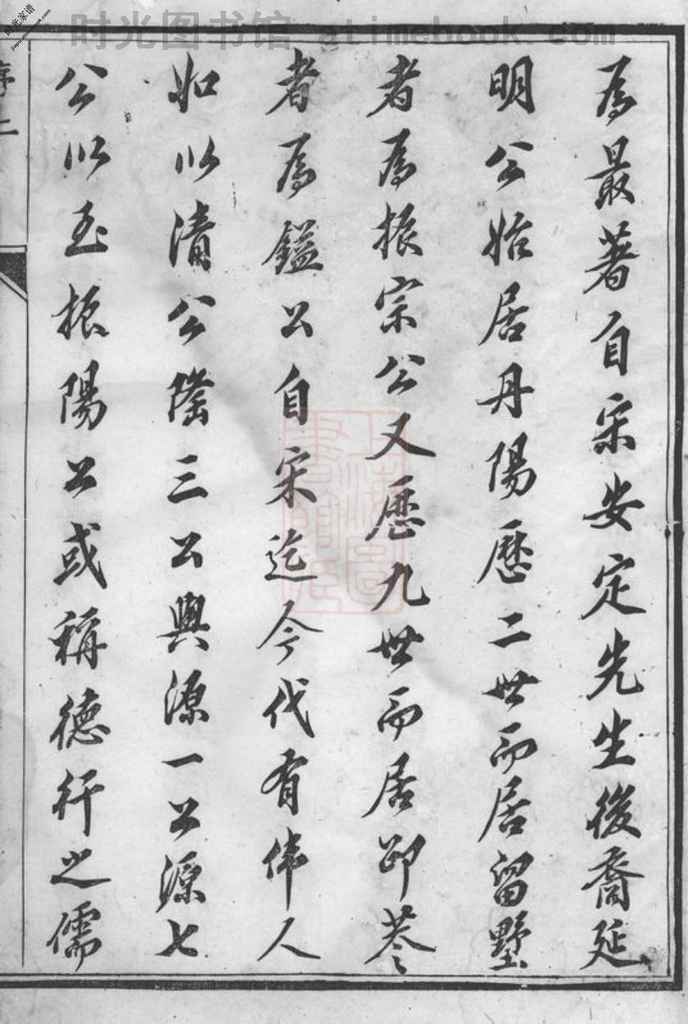 时光图书馆 atimebook.com
為最著自宋安定先生後裔延
明公始居丹陽歷二世而居留墅
者為振宗公又歷九世而居卭葊
者為鎰公自宋迄今代有偉人
如以清公隆三公與源一公源七
公以玉振陽公或稱德行之儒
序二